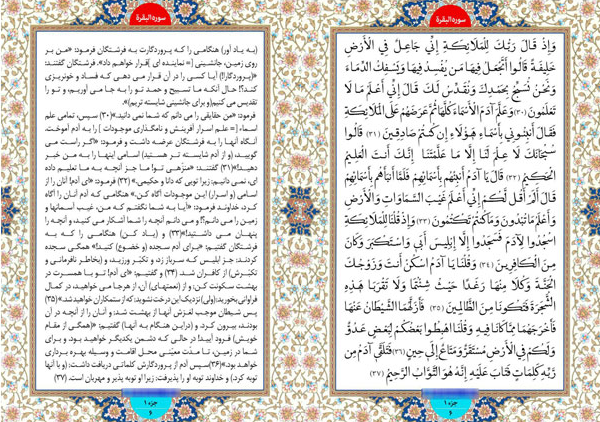 سورة البقرة
وَإِذْ قَالَ رَبُّكَ لِلْمَلَائِكَةِ إِنِّي جَاعِلٌ فِي الْأَرْضِ
خَلِيفَةً قَالُوا أَتَجْعَلُ فِيهَا مَنْ يُفْسِدُ فِيهَا وَيَسْفِكُ الدِّمَاءَ
وَنَحْنُ نُسَبِّحُ بِحَمْدِكَ وَنُقَدِّسُ لَكَ قَالَ إِنِّي أَعْلَمُ مَا لَا
تَعْلَمُونَ (۳۰) وَعَلَّمَ آدَمَ الْأَسْمَاءَ كُلَّهَا ثُمَّ عَرَضَهُمْ عَلَى الْمَلَائِكَةِ
فَقَالَ أَنْبِئُونِي بِأَسْمَاءِ هَؤُلَاءِ إِنْ كُنْتُمْ صَادِقِينَ (۳۱) قَالُوا
سُبْحَانَكَ لَا عِلْمَ لَنَا إِلَّا مَا عَلَّمْتَنَا إِنَّكَ أَنْتَ الْعَلِيمُ
الْحَكِيمُ (۳۲) قَالَ يَا آدَمُ أَنْبِئْهُمْ بِأَسْمَائِهِمْ فَلَمَّا أَنْبَأَهُمْ بِأَسْمَائِهِمْ
قَالَ أَلَمْ أَقُلْ لَكُمْ إِنِّي أَعْلَمُ غَيْبَ السَّمَاوَاتِ وَالْأَرْضِ
وَأَعْلَمُ مَا تُبْدُونَ وَمَا كُنْتُمْ تَكْتُمُونَ (۳۳) وَإِذْ قُلْنَا لِلْمَلَائِكَةِ
اسْجُدُوا لِآدَمَ فَسَجَدُوا إِلَّا إِبْلِيسَ أَبَى وَاسْتَكْبَرَ وَكَانَ
مِنَ الْكَافِرِينَ (۳۴) وَقُلْنَا يَا آدَمُ اسْكُنْ أَنْتَ وَزَوْجُكَ
الْجَنَّةَ وَكُلَا مِنْهَا رَغَدًا حَيْثُ شِئْتُمَا وَلَا تَقْرَبَا هَذِهِ
الشَّجَرَةَ فَتَكُونَا مِنَ الظَّالِمِينَ (۳۵) فَأَزَلَّهُمَا الشَّيْطَانُ عَنْهَا
فَأَخْرَجَهُمَا مِمَّا كَانَا فِيهِ وَقُلْنَا اهْبِطُوا بَعْضُكُمْ لِبَعْضٍ عَدُوٌّ
وَلَكُمْ فِي الْأَرْضِ مُسْتَقَرٌّ وَمَتَاعٌ إِلَى حِينٍ (۳۶) فَتَلَقَّى آدَمُ مِنْ
رَبِّهِ كَلِمَاتٍ فَتَابَ عَلَيْهِ إِنَّهُ هُوَ التَّوَّابُ الرَّحِيمُ (۳۷)
جزء ۱
۶
سورة البقرة
(به یاد آور) هنگامی را که پروردگارت به فرشتگان فرمود: «من بر
روی زمین، جانشینی [= نماینده ای ]قرار خواهم داد». فرشتگان گفتند:
«(پروردگارا!) آیا کسی را در آن قرار می دهی که فساد و خونریزی
کند؟! حال آنکه ما تسبیح و حمد تو را به جا می آوریم، و تو را
تقدیس می کنیم(و برای جانشینی شایسته تریم)».
فرمود: «من حقایقی را می دانم که شما نمی دانید.»(۳۰) سپس، تمامی علم
اسماء [= علم اسرار آفرینش و نامگذاری موجودات ] را به آدم آموخت.
آنگاه آنها را به فرشتگان عرضه داشت و فرمود: «اگر راست می
گویید، (و از آدم شایسته تر هستید) اسامی اینها را به من خبر
دهید!»(۳۱) گفتند: «منزّهی تو! ما جز آنچه به ما تعلیم داده
ای، نمی دانیم; زیرا تویی که دانا و حکیمی.» (۳۲) فرمود: «ای آدم! آنان را از
اسامی (و اسرار) این موجودات آگاه کن.» هنگامی که آدم آنان را آگاه
کرد، خداوند فرمود: «آیا به شما نگفتم که من، غیب آسمانها و
زمین را می دانم؟! و می دانم آنچه را شما آشکار می کنید، و آنچه را
پنهان می داشتید!»(۳۳) و (یاد کن) هنگامی را که به
فرشتگان گفتیم: «برای آدم سجده (و خضوع) کنید!» همگی سجده
کردند; جز ابلیس که سرباز زد، و تکبّر ورزید، و (بخاطر نافرمانی و
تکبّرش) از کافران شد. (۳۴) و گفتیم: «ای آدم! تو با همسرت در
بهشت سکونت کن; و از (نعمتهای) آن، از هرجا می خواهید، در کمال
فراوانی بخورید; (ولی) نزدیک این درخت نشوید; که از ستمکاران خواهید شد.»(۳۵)
پس شیطان موجب لغزش آنها از بهشت شد; و آنان را از آنچه در آن
بودند، بیرون کرد. و (دراین هنگام به آنها) گفتیم: «(همگی از مقام
خویش) فرود آیید! در حالی که دشمن یکدیگر خواهید بود. و برای
شما در زمین، تا مدّت معیّنی محل اقامت و وسیله بهره برداری
خواهد بود.»(۳۶)سپس آدم از پروردگارش کلماتی دریافت داشت; (و با آنها
توبه کرد.) و خداوند توبه او را پذیرفت; زیرا او توبه پذیر و مهربان است. (۳۷)
جزء ۱
۶